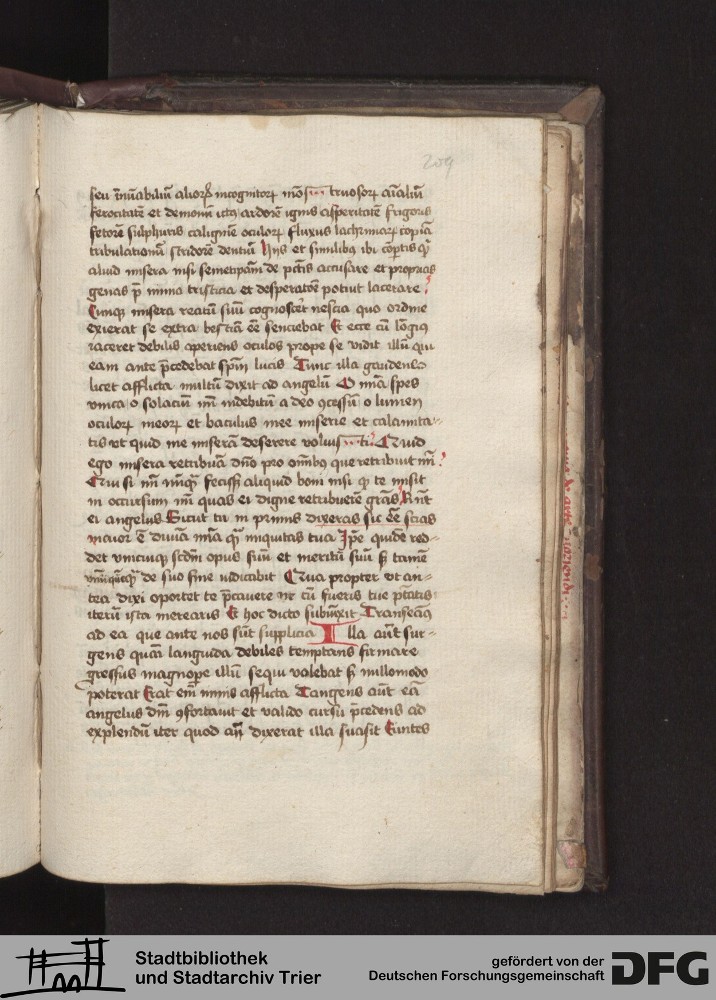 209
seu īnūabiliū alioꝝ incognitoꝝ mōs truosoꝝ aīaliū
ferocitatē et demonū ictꝰ ardorē ignis asperitatē frigoris
fetorē sulphuris caliginē oculoꝝ fluxus lachrimaꝝ copiā
tribulationū stridorē dentiū hijs et similibꝰ ibi
aliud misera nisi semetipām de pctīs accusare et proprias
genas p̄ nimia tristicia et desperatōe potuit lacerare
Cunqꝫ misera reatū suū cognoscēt nescia quo ordine
exierat se extra bestiā eē senciebat Et ecce cū lōgiꝰ
iaceret debilis aperiens oculos prope se vidit illū qui
eam ante p̄cedebat spm̄ lucis Tunc illa gaudens
licet afflicta multū dixit ad angelū O mīa spes
vnica o solaciū m̄ indebitū a deo ꝯcessū o lumen
oculoꝝ meoꝝ et baculus mee miserie et calamita-
tis vt quid me miserā deserere voluisti Quid
ego misera retribuā dn̄o pro om̄ibꝰ que retribuit m̄
Qui si m̄ nūqꝫ fecisset aliquid boni nisi qꝫ te misit
in occursum m̄ quas ei digne retribuerē gr̄as Rn̄t
ei angelus Sicut tu in primis dixeras sic eē scias
maior ē diuīa mīa qꝫ iniquitas tua Ip̄e quidē red-
det vnicuiqꝫ scdm̄ opus suū et meritū suū sꝫ tamē
de suo fine iudicabit Qua propter vt an-
tea dixi oportet te p̄cauere ne cū fueris tue p̄tatis
iterū ista merearis Et hoc dicto subiūxit Transeāꝰ
ad ea que ante nos sūt supplicia Illa aūt sur-
gens quasi languida debiles temptans firmare
gressus magnope illū sequi volebat sꝫ nullomodo
poterat Erat em̄ nimis afflicta Tangens aūt eā
angelus dn̄i ꝯfortauit et valido cursu p̄cedens ad
explendū iter quod an̄ dixerat illa suasit Euntes
Stadtbibliothek
und Stadtarchiv Trier
gefördert von der
Deutschen Forschungsgemeinschaft
DFG